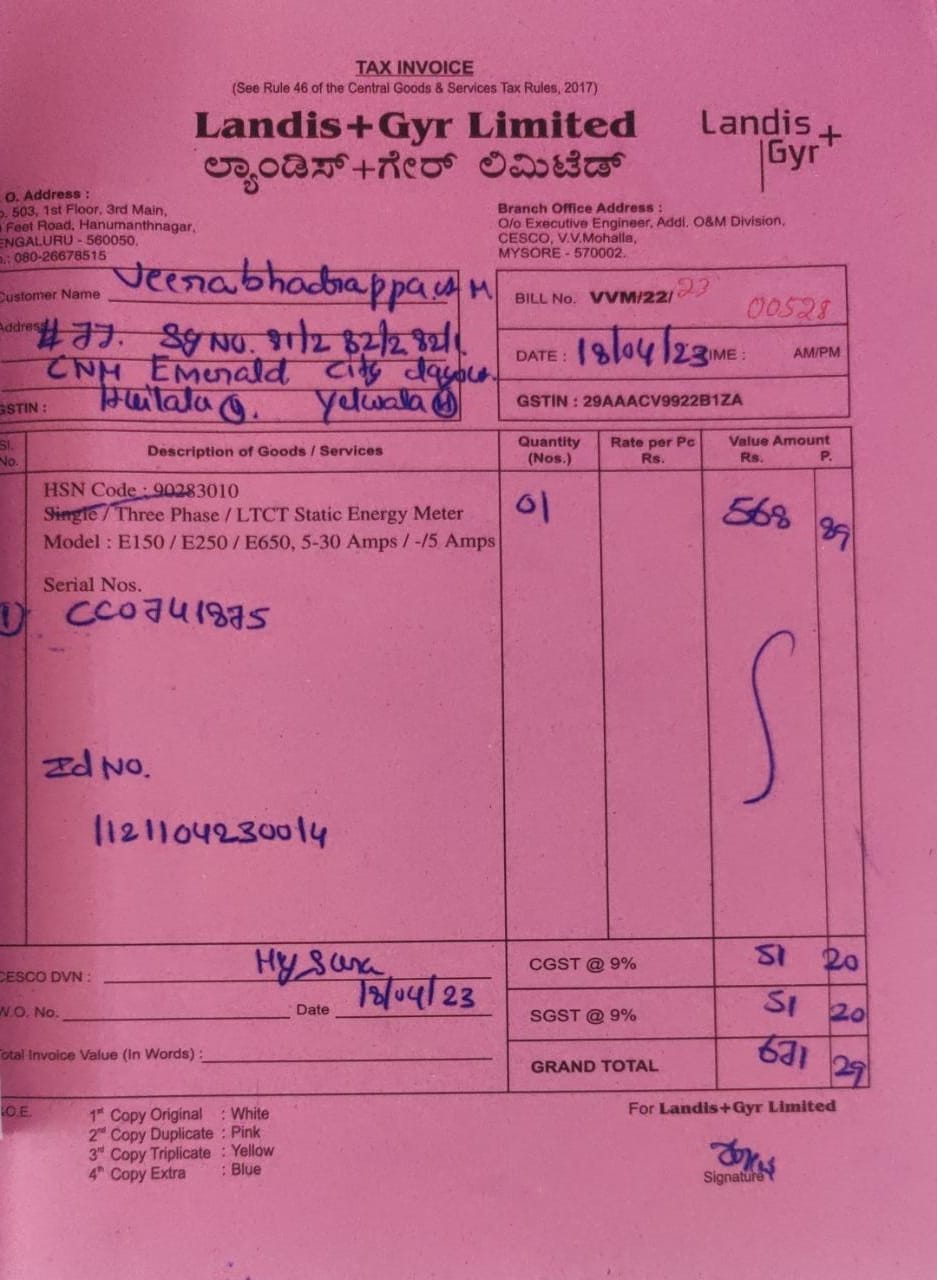 TAX INVOICE
(See Rule 46 of the Central Goods & Services Tax Rules, 2017)
Landis+Gyr Limited
ಲ್ಯಾಂಡಿಸ್+ಗೇರ್ ಲಿಮಿಟೆಡ್
Landis
Gyr+
O. Address :
503, 1st Floor, 3rd Main,
Feet Road, Hanumanthnagar,
ENGALURU - 560050.
.: 080-26678515
Branch Office Address :
O/o Executive Engineer, Addl. O&M Division,
CESCO, V.V.Mohalla,
MYSORE - 570002.
Customer Name
Address # 77. Sy NO. 81/2 82/2 82/1
CNH Emerald City
GSTIN : Yelwala (H)
BILL No. VVM/22/23 00528
DATE : 18/04/23 IME : AM/PM
GSTIN : 29AAACV9922B1ZA
Sl. No. Description of Goods / Services Quantity (Nos.) Rate per Pc Rs. Value Amount Rs. P.
HSN Code : 90283010
Single / Three Phase / LTCT Static Energy Meter 01 568 89
Model : E150 / E250 / E650, 5-30 Amps / -/5 Amps
Serial Nos.
1) CC0741875
Id NO.
1121104230014
CESCO DVN : CGST @ 9% 51 20
W.O. No. Date 18/04/23 SGST @ 9% 51 20
Total Invoice Value (In Words) : GRAND TOTAL 671 29
.O.E.
1st Copy Original : White
2nd Copy Duplicate : Pink
3rd Copy Triplicate : Yellow
4th Copy Extra : Blue
For Landis+Gyr Limited
Signature